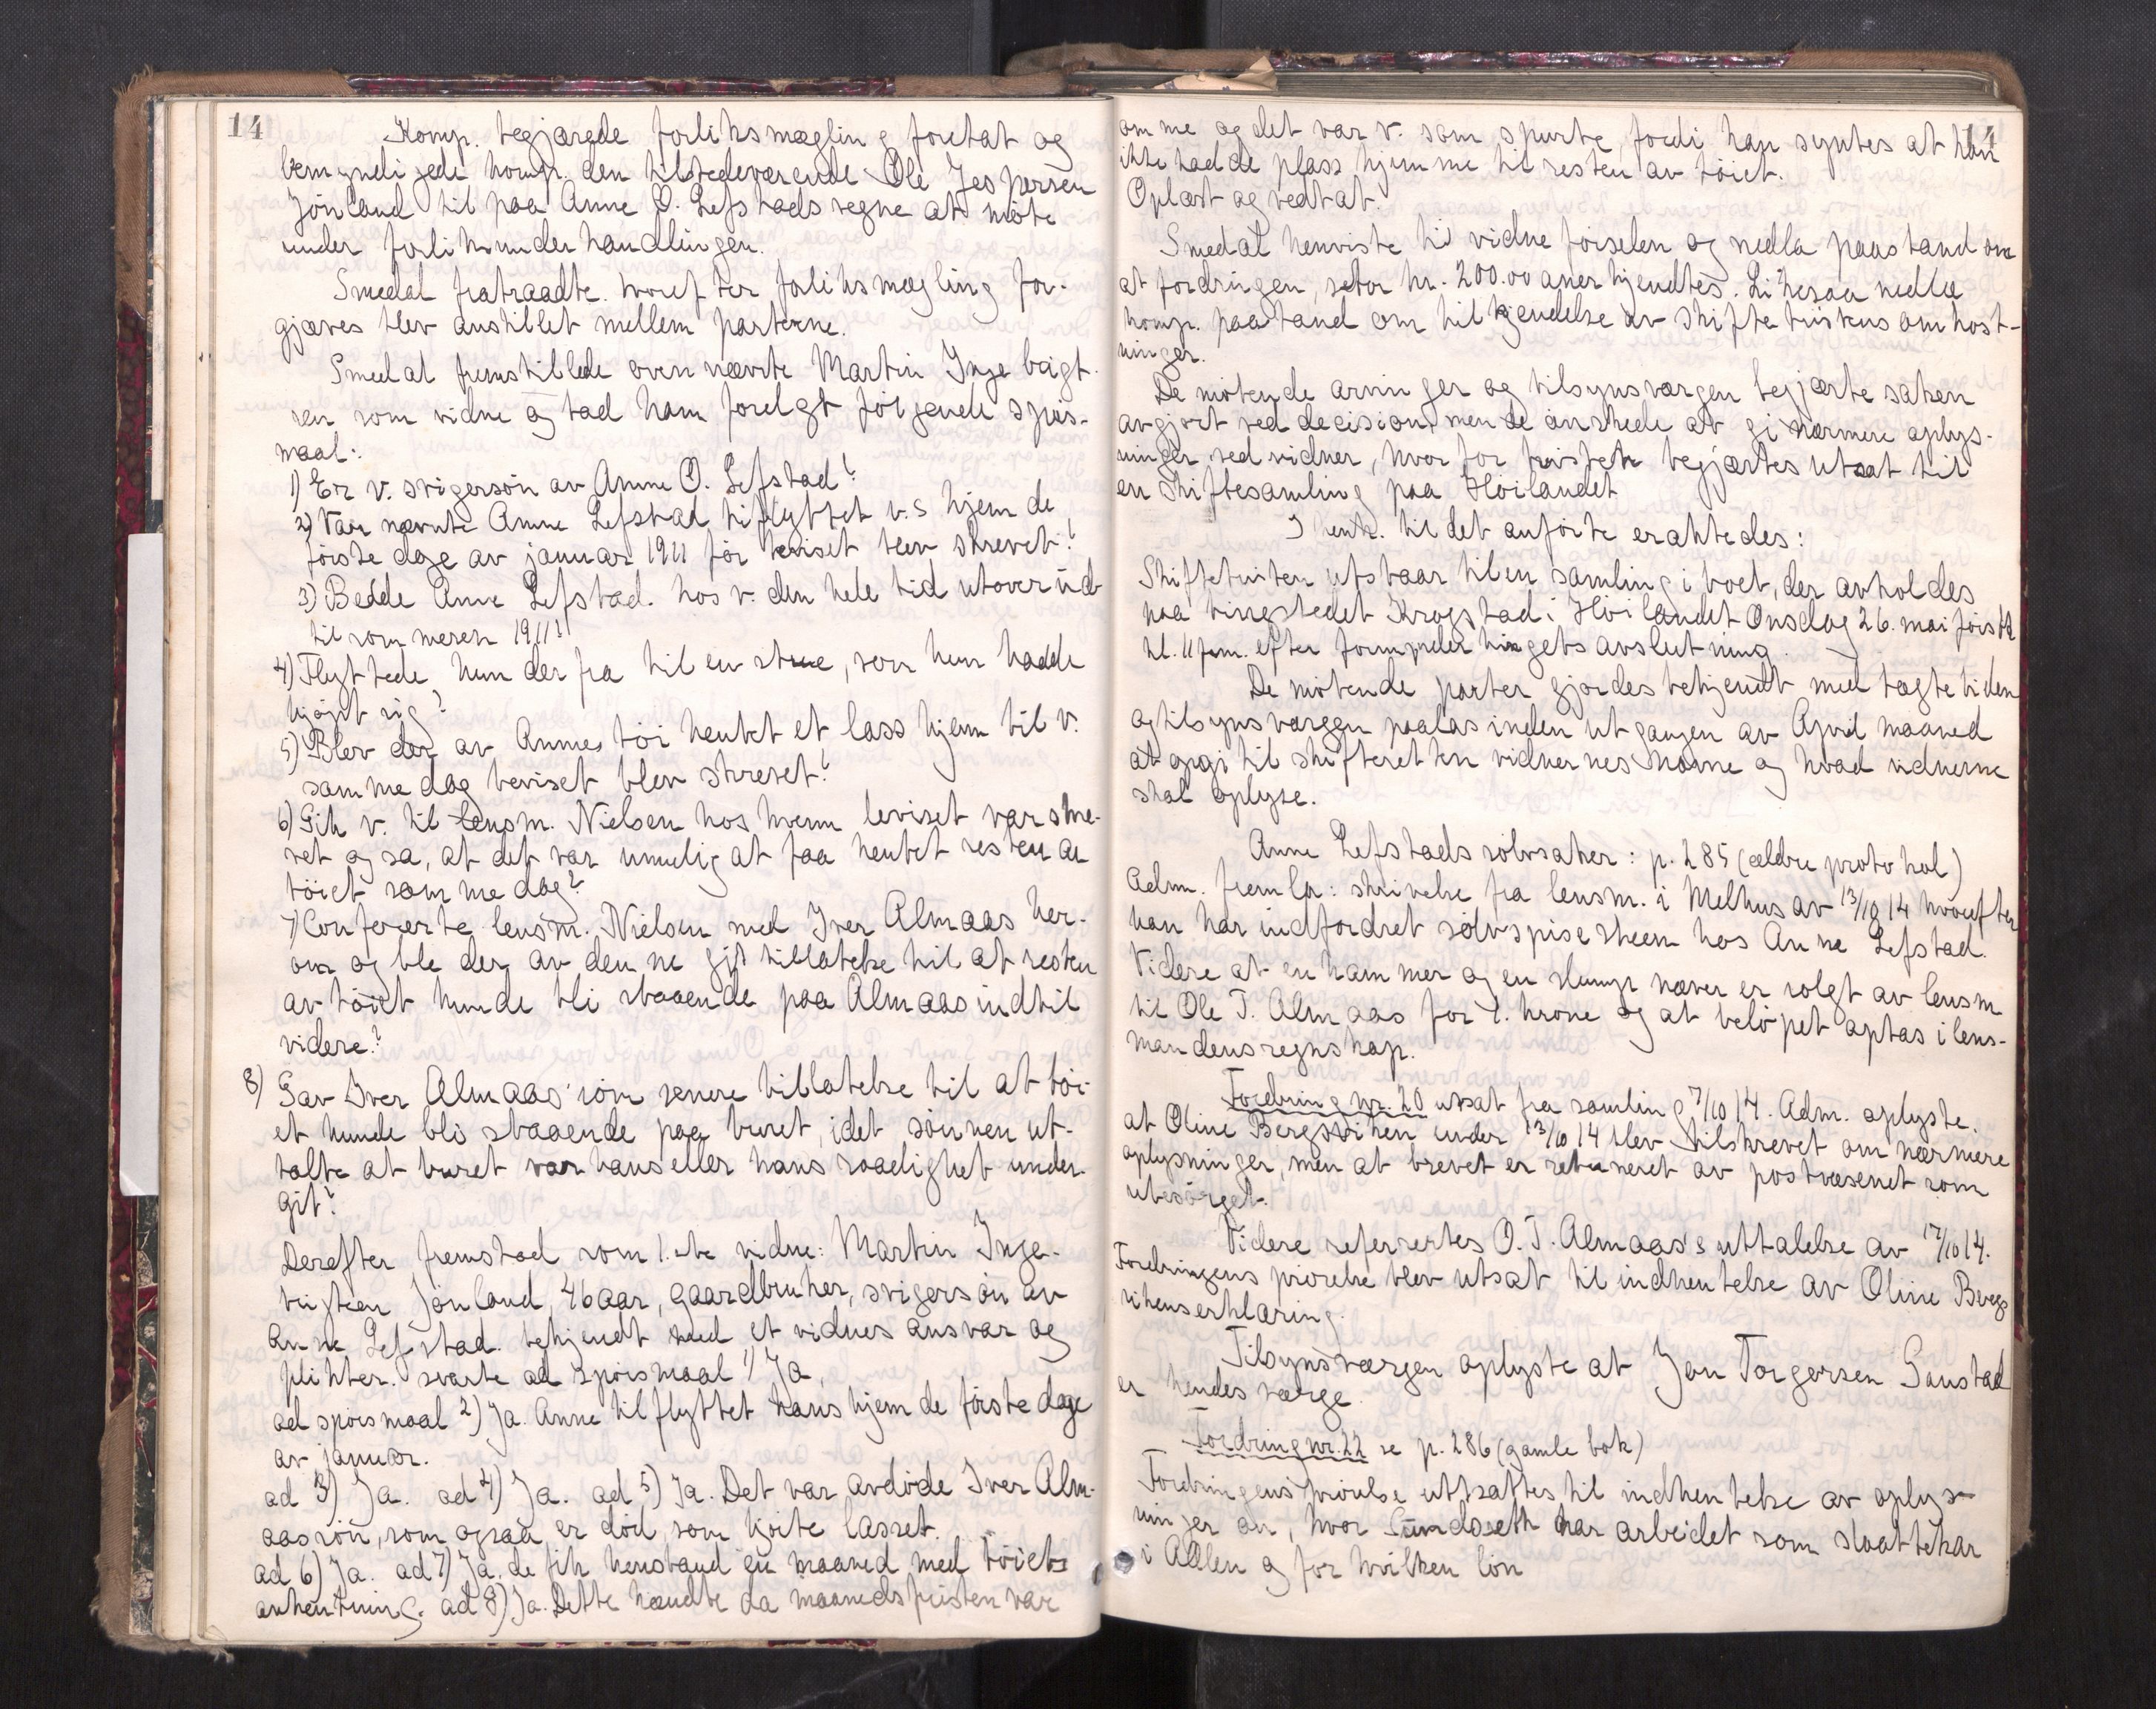 14
Komp. begjærede forliksmægling foretat og
bemyndigede komp. den tilstedeværende Ole Jespersen
Jønland til paa Anne O. Lefstads vegne at møte
under forliksunderhandlingen.
Smedal fratraadte. hvorefter forliksmægling for-
gjæves blev anstillet mellem parterne.
Smedal fremstillede ovennævnte Martin Ingebrigt-
sen som vidne og bad ham forelagt følgende spørs-
maal:
1) Er v. svigersøn av Anne O. Lefstad?
2) Var nævnte Anne Lefstad tilflyttet v.s hjem de
første dage av januar 1911 før beviset blev skrevet?
3) Bodde Anne Lefstad hos v. den hele tid utover ind
til sommeren 1911?
4) Flyttede hun derfra til en stue, som hun hadde
kjøpt sig?
5) Blev der av Annes tøi hentet et lass hjem til v.
samme dag beviset blev skrevet?
6) Gik v. til lensm. Nielsen hos hvem beviset var skre-
vet og sa, at det var umulig at faa hentet resten av
tøiet samme dag?
7) Confererte lensm. Nielsen med Iver Almaas her-
om og ble der av denne git tillatelse til at resten
av tøiet kunde bli staaende paa Almaas indtil
videre?
8) Gav Iver Almaas' søn senere tillatelse til at tøi-
et kunde bli staaende paa buret, idet sønnen ut-
talte at buret var hans eller hans raadighet under-
git?
Derefter fremstod som 1.ste vidne: Martin Inge-
brigtsen Jønland, 46 aar, gaardbruker, svigersøn av
Anne Lefstad. bekjendt med et vidnes ansvar og
plikter. svarte ad spørsmaal 1) Ja,
ad spørsmaal 2) Ja. Anne tilflyttet hans hjem de første dage
av januar.
ad 3) Ja. ad 4) Ja. ad 5) Ja. Det var avdøde Iver Alm-
aas søn, som ogsaa er død, som kjørte lasset.
ad 6) Ja. ad 7) Ja. de fik henstand en maaned med tøiets
avhentning. ad 8) Ja. Dette hændte da maanedsfristen var
14
omme og det var v. som spurte, fordi han syntes at han
ikke hadde plass hjemme til resten av tøiet.
Oplæst og vedtat.
Smedal henviste til vidneførselen og nedla paastand om
at fordringen, stor kr. 200.00 anerkjendtes. Likesaa nedla
komp. paastand om tilkjendelse av skiftetvistens omkost-
ninger.
De møtende arvinger og tilsynsværgen begjærte saken
avgjort ved decision, men de ønskede at gi nærmere oplys-
ninger ved vidner, hvorfor tvisten begjærtes utsat til
en skiftesamling paa Høilandet
I henh. til det anførte eraktedes:
Skiftetvisten utstaar til en samling i boet, der avholdes
paa tingstedet Krogstad i Høilandet Onsdag 26. mai førstk.
kl. 11 fm. efter formynderthingets avslutning.
De møtende parter gjordes bekjendt med tægtetiden
og tilsynsværgen paalas inden utgangen av April maaned
at opgi til skifteretten vidnernes navne og hvad vidnerne
skal oplyse.
Anne Lefstads sølvsaker: p. 285 (ældre protokol)
Adm. fremla: skrivelse fra lensm. i Melhus av 13/10 14 hvorefter
han har indfordret sølvspiseskeen hos Anne Lefstad.
Videre at en hammer og en slump næver er solgt av lensm
til Ole J. Almaas for 1. krone og at beløpet optas i lens-
mandens regnskap.
Fordring nr. 20 utsat fra samling 7/10 14. Adm. oplyste.
at Oline Bergsviken under 13/10 14 blev tilskrevet om nærmere
oplysninger, men at brevet er returneret av postvæsenet som
ubesørget.
Videre referertes O. J. Almaas's uttalelse av 17/10 14.
Fordringens prøvelse blev utsat til indhentelse av Oline Bergs
vikens erklæring.
Tilsynsværgen oplyste at Jon Torgersen Gaustad
er hendes værge.
Fordring nr. 22 se p. 286 (gamle bok)
Fordringens prøvelse utsattes til indhentelse av oplys-
ninger om, hvor har arbeidet som slaattekar
i og for hvilken løn